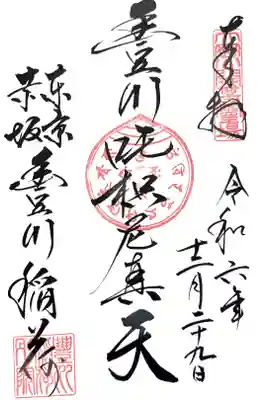 奉拝
令和六年
十一月二十九日
豊川吒枳尼真天
東京
赤坂
豊川稲荷